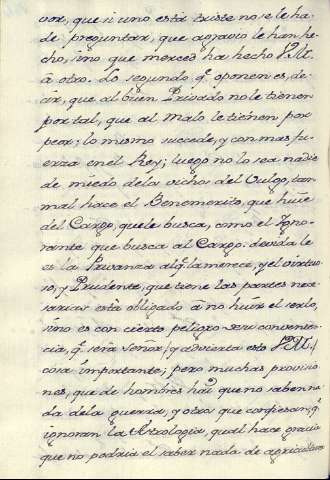 vor, que si uno está triste no se le ha
de preguntar, que agravio le han he
cho, sino que merced ha hecho V.M.
á otro. Lo segundo q.e oponen es, de
cir, que al buen Privado no le tienen
por tal, que al malo le tienen por
peor: lo mismo succede, y con mas fu
erza en el Rey; luego no lo sea nadie
de miedo dela vicho del Vulgo, tan
mal hace el Benemerito, que huie
del Cargo, que le busca, como el Igno
rante que busca al Cargo. devida le
es la Privanza al q.e la merece, y el virtuo
so, y Prudente, que tiene las partes nece
sarias está obligado á no huir el serlo,
sino es con cierto peligro de su convenien
cia, q.e será Señor, (y advierta esto V.M.,
cosa importante; pero muchas provisio
nes, que de hombres hai que no saben na
da dela guerra, y otros que confiesan, q.e
ignoran la Astrologia, qual hace gracia
que no podria el saber nada de agricultura